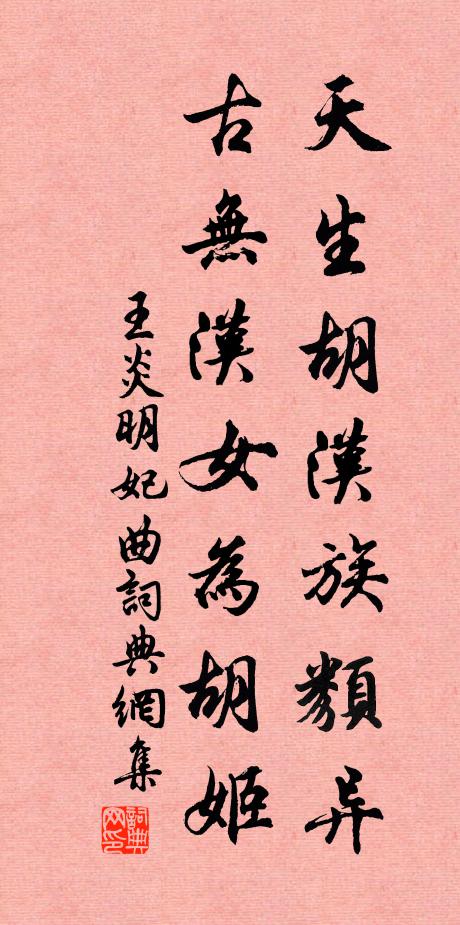 天生胡漢族類异
古無漢女為胡姬
王炎明妃曲詞典網集
詞典网印